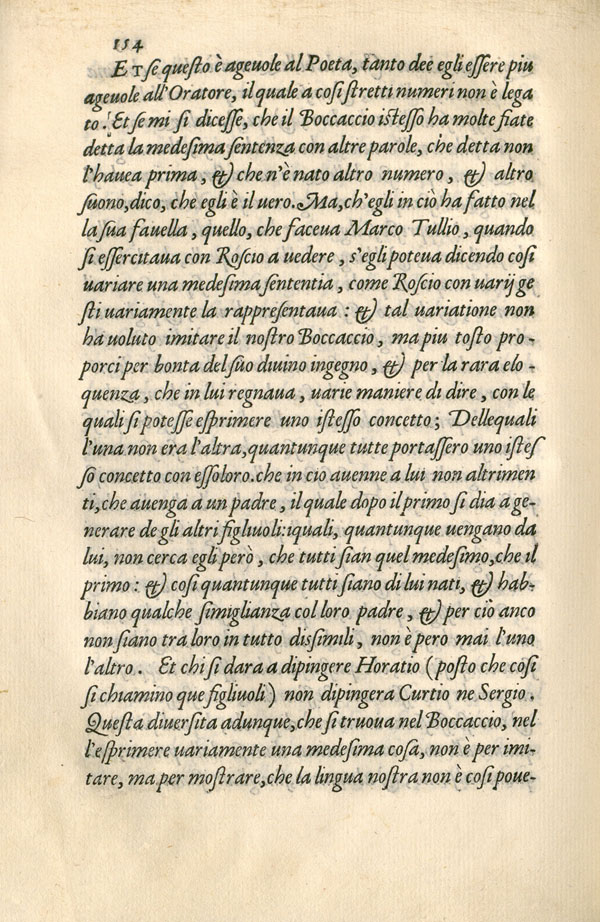 154
ET se questo è ageuole al Poeta, tanto dee egli essere piu
ageuole all'Oratore, il quale a cosi stretti numeri non è lega
to. Et se mi si dicesse, che il Boccaccio istesso ha molte fiate
detta la medesima sentenza con altre parole, che detta non
l'hauea prima, & che n'è nato altro numero, & altro
suono, dico, che egli è il uero. Ma, ch'egli in ciò ha fatto nel
la sua fauella, quello, che faceua Marco Tullio, quando
si essercitaua con Roscio a uedere, s'egli poteua dicendo cosi
uariare una medesima sententia, come Roscio con uarij ge
sti uariamente la rappresentaua: & tal uariatione non
ha uoluto imitare il nostro Boccaccio, ma piu tosto pro-
porci per bonta del suo diuino ingegno, & per la rara elo-
quenza, che in lui regnaua, uarie maniere di dire, con le
quali si potesse esprimere uno istesso concetto; Dellequali
l'una non era l'altra, quantunque tutte portassero uno istes
so concetto con essoloro. che in cio auenne a lui non altrimen
ti, che auenga a un padre, il quale dopo il primo si dia a ge-
nerare de gli altri figliuoli: iquali, quantunque uengano da
lui, non cerca egli però, che tutti sian quel medesimo, che il
primo: & cosi quantunque tutti siano di lui nati, & hab-
biano qualche simiglianza col loro padre, & per ciò anco
non siano tra loro in tutto dissimili, non è pero mai l'uno
l'altro. Et chi si dara a dipingere Horatio (posto che cosi
si chiamino que figliuoli) non dipingera Curtio ne Sergio.
Questa diuersita adunque, che si truoua nel Boccaccio, nel
l'esprimere uariamente una medesima cosa, non è per imi-
tare, ma per mostrare, che la lingua nostra non è cosi poue-